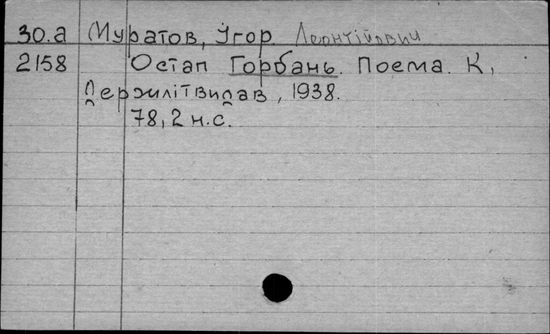 30.а Муратов, Ігор Леонтійович
2158 Остап Горбань. Поема. К,
Держлітвидав, 1938.
78, 2 н.с.